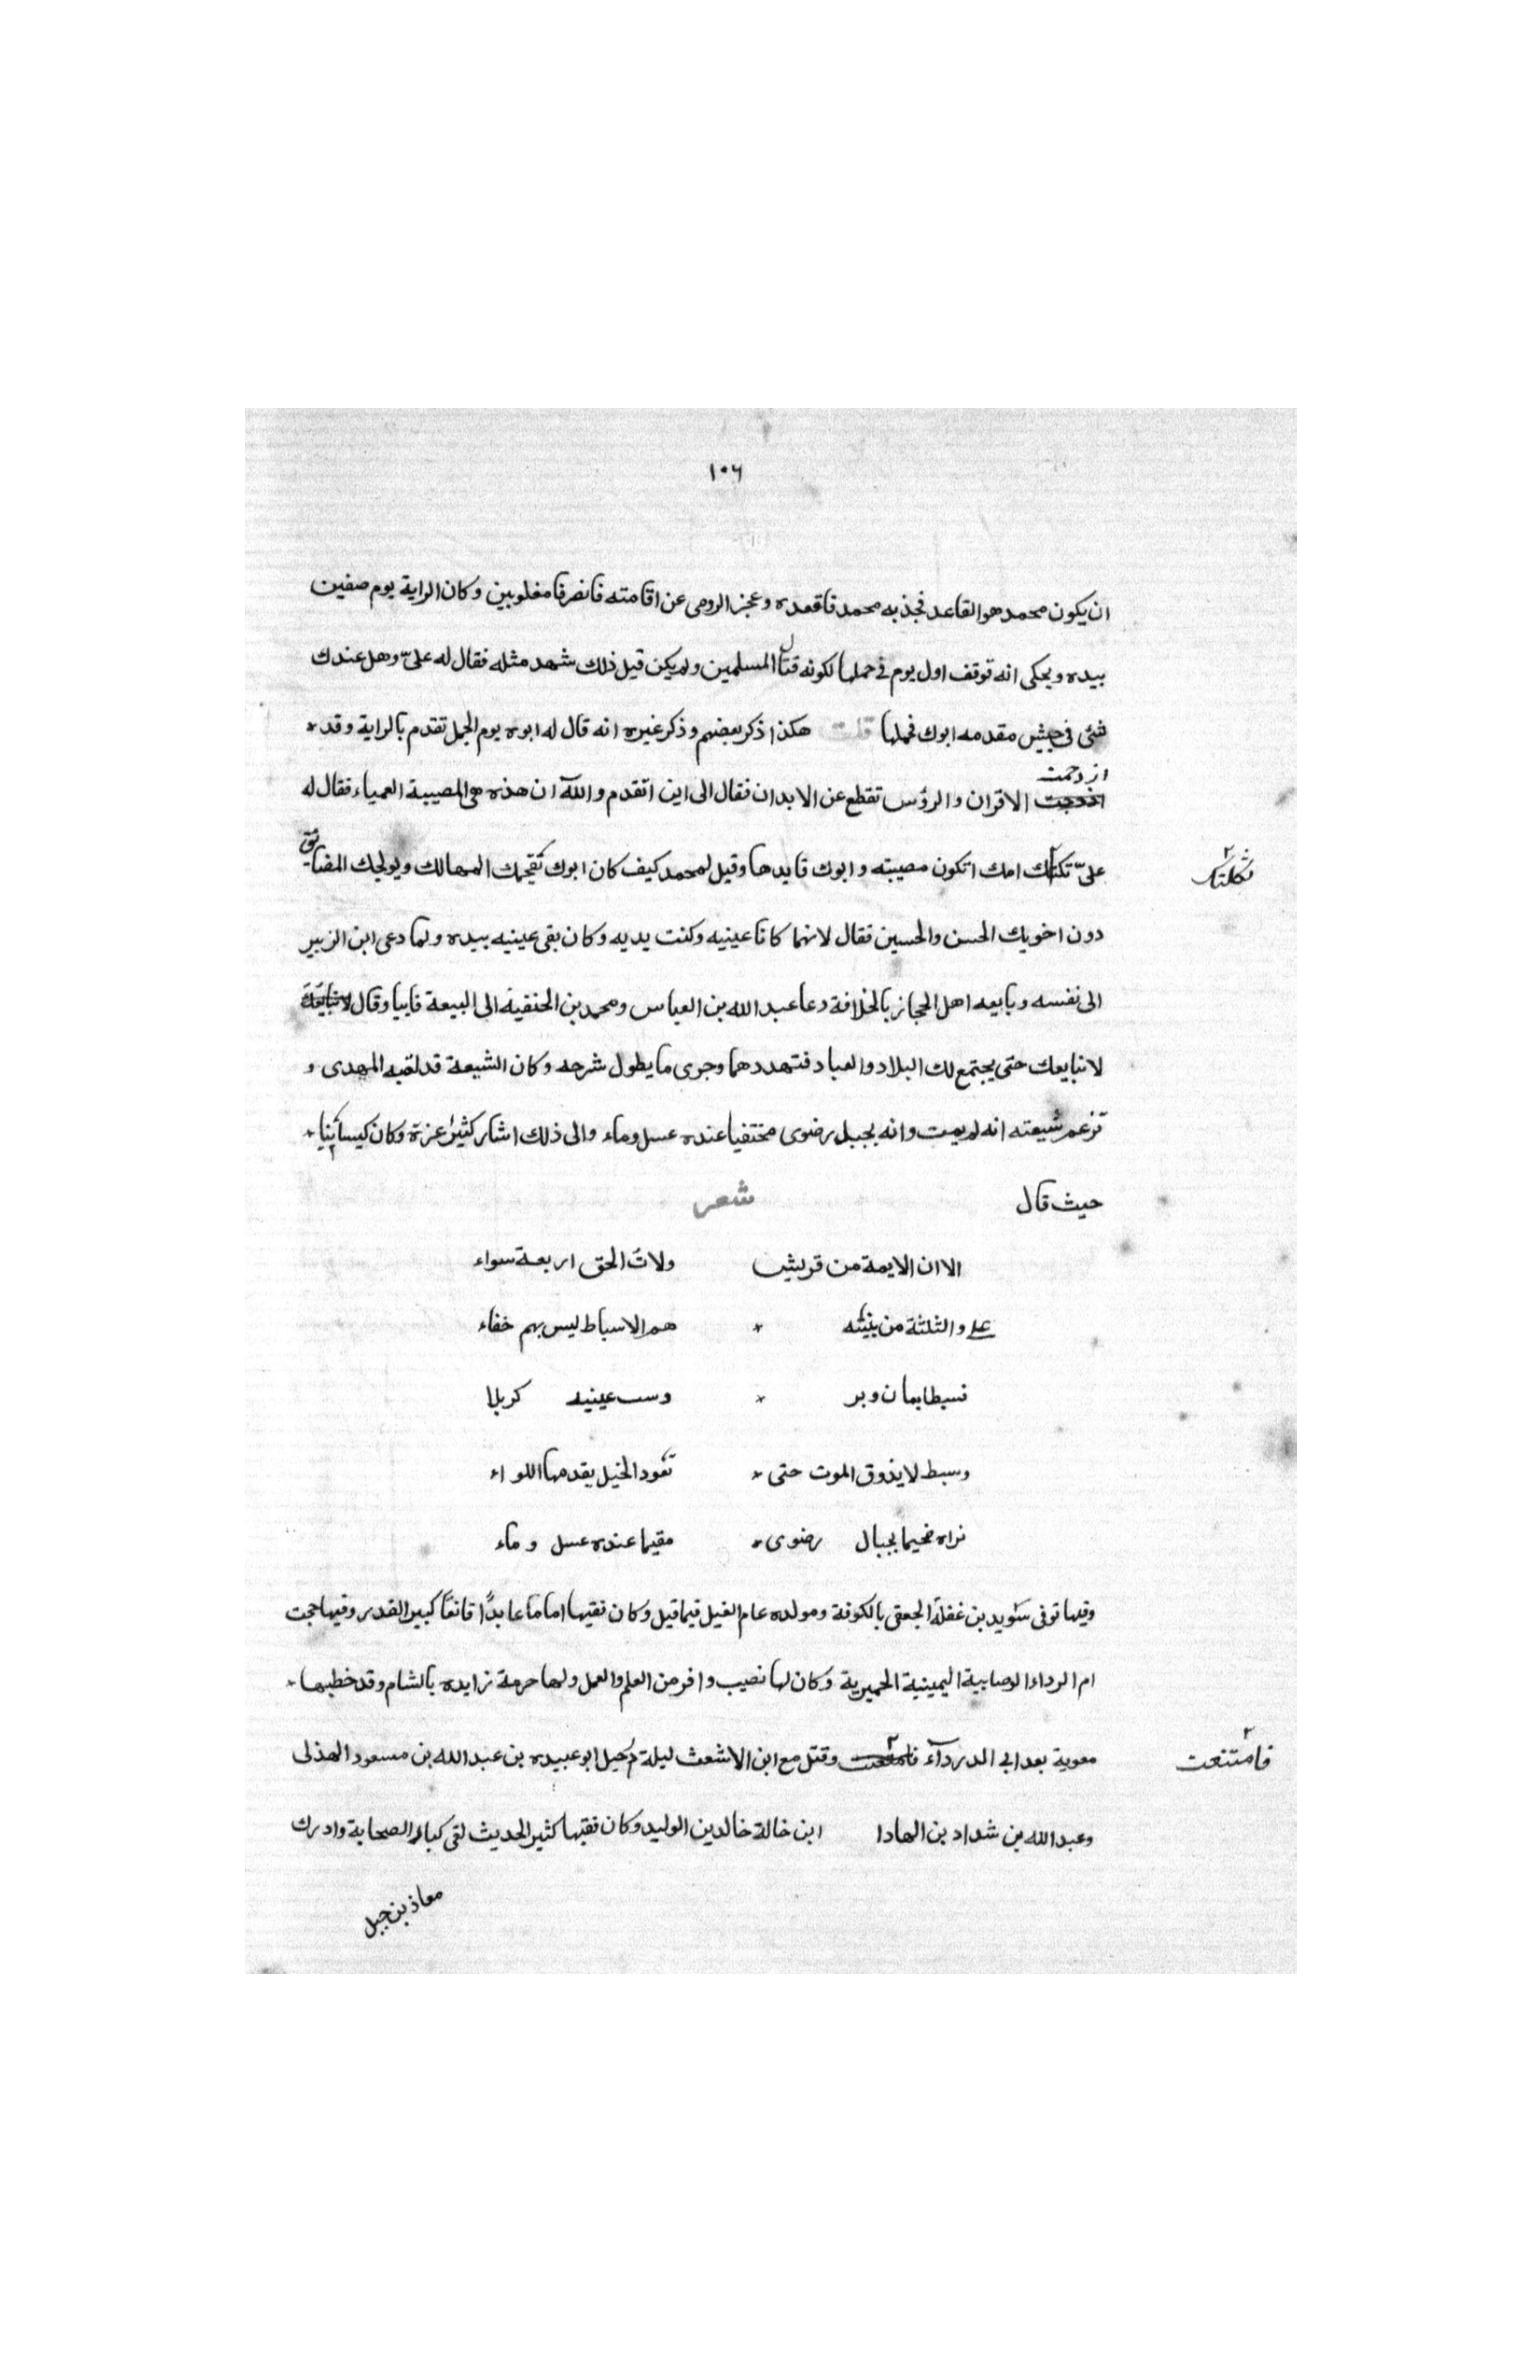 ١٠٦
ان يكون محمد هو القاعد فجذبه محمد فاقعده وعجز الرومى عن اقامته فانصرفا مغلوبين وكان الراية يوم صفين
بيده ويحكى انه توقف اول يوم فى حملها لكونه قتال المسلمين ولم يكن قيل ذلك شهد مثله فقال له علىّ وهل عندك
شئ فى جيش مقدمه ابوك فحملها قلت هكذا ذكر بعضهم وذكر غيره انه قال له ابوه يوم الجمل تقدم بالراية وقد
ازدحمت
الاقران والرؤس تقطع عن الابدان فقال الى اين اتقدم والله ان هذه هى المصيبة العمياء فقال له
علىّ تكتك امك اتكون مصيبته وابوك قايدها وقيل لمحمد كيف كان ابوك يقحمك المهالك ويولجك المضائق
ثكلتك
دون اخويك الحسن والحسين فقال لانهما كانا عينيه وكنت يديه وكان بقى عينيه بيده ولما دعى ابن الزبير
الى نفسه وبايعه اهل الحجاز بالخلافة دعا عبد الله بن العباس ومحمد بن الحنفية الى البيعة فابيا وقال
لا نبايعك حتى يجتمع لك البلاد والعباد فتهددهما وجرى ما يطول شرحه وكان الشيعة قد لقبه المهدى و
تزعم شيعته انه لم يمت وانه بجبل رضوى مختفيا عنده عسل وماء والى ذلك اشار كثير عزة وكان كيسانيا
حيث قال شعر
الا ان الايمة من قريش ولات الحق اربعة سواء
على والثلثة من بنيه هم الاسباط ليس بهم خفاء
نسبط ايمان وبر وسب عينيه كربلا
وسبط لا يذوق الموت حتى تقود الخيل يقدمها اللواء
نراه مخيما بجبال رضوى مقيما عنده عسل وماء
وفيها توفى سويد بن غفلة الجعفى بالكوفة ومولده عام الفيل فيما قيل وكان فقيها اماما عابدًا قانعًا كبير القدر وفيها حجت
ام الرداء الوصابية اليمينية الحميرية وكان لها نصيب وافر من العلم والعمل ولها حرمة زايده بالشام وقد خطبها
معوية بعد ابى الدردآء وقتل مع ابن الاشعث ليلة دجيل ابو عبيده بن عبد الله بن مسعود الهذلى
فامتنعت
وعبد الله بن شداد بن الهادا ابن خالة خالد بن الوليد وكان فقيها كثير الحديث لقى كبار الصحابة وادرك
معاذ بن جبل